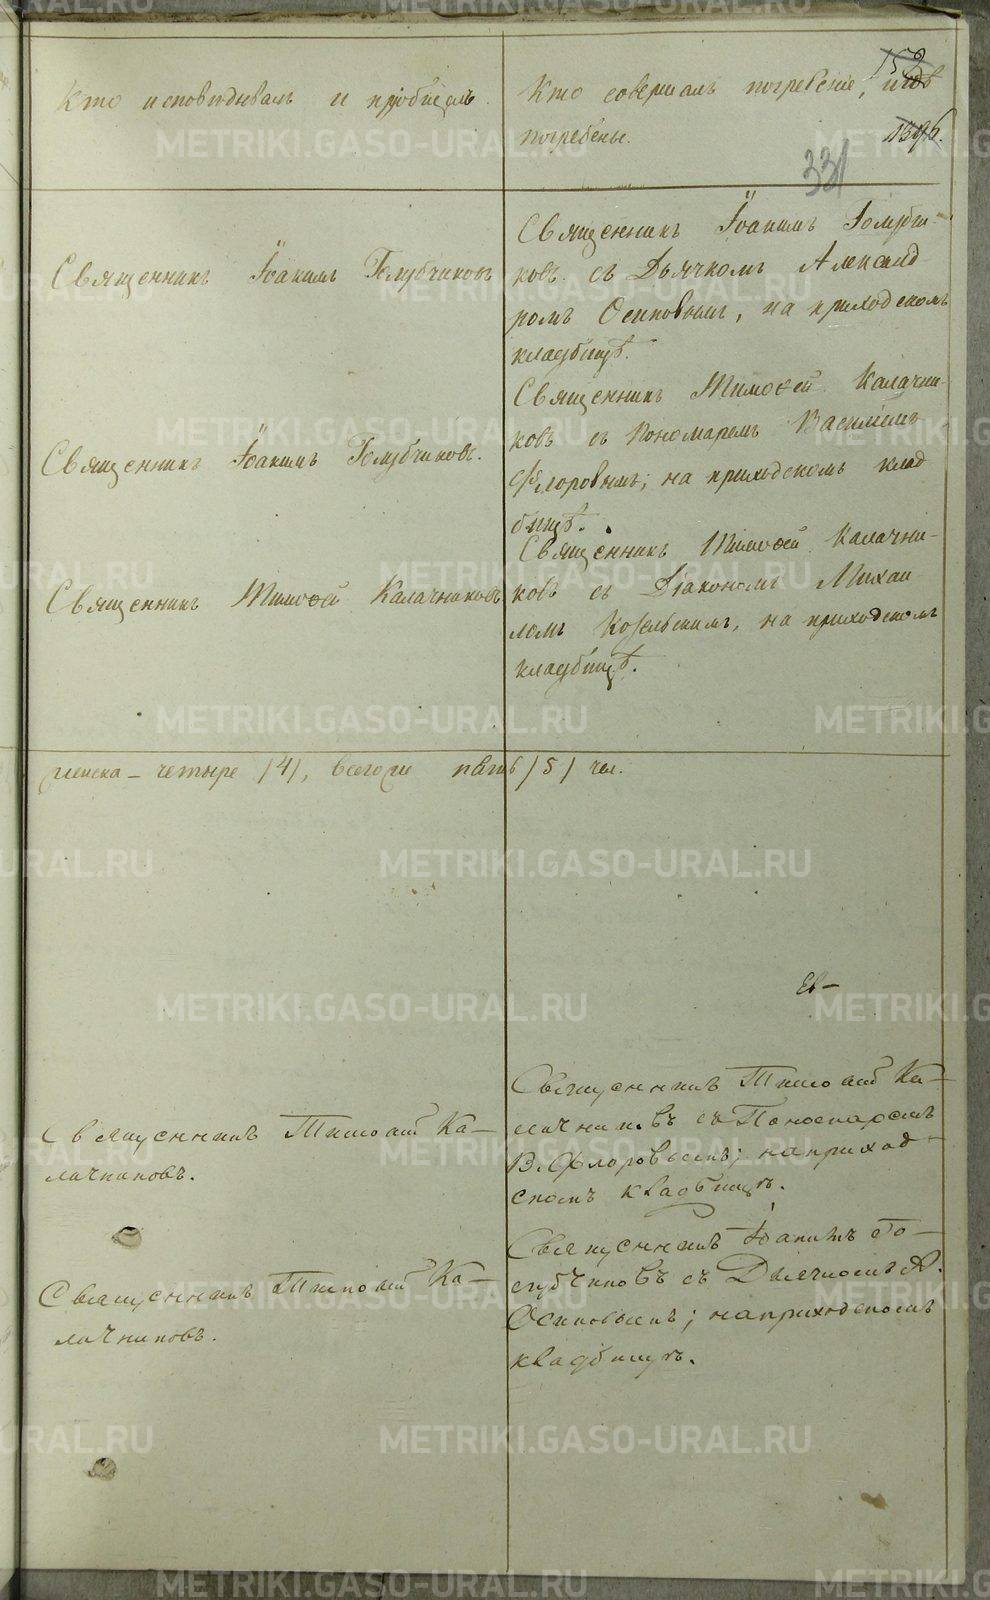 153
1396.
331
Кто исповѣдывалъ и пріобщалъ.
Кто совершалъ погребеніе, и гдѣ
погребены.
Священникъ Іоакимъ Голубчиковъ
Священникъ Іоакимъ Голубчи-
ковъ съ Дьячкомъ Александ
ромъ Осиповымъ, на приходскомъ
кладбищѣ.
Священникъ Іоакимъ Голубчиковъ.
Священникъ Тимоѳей Калачни-
ковъ съ Пономаремъ Василіемъ
Флоровымъ; на приходскомъ клад
бищѣ.
Священникъ Тимоѳей Калачниковъ
Священникъ Тимоѳей Калачни-
ковъ съ Діакономъ Михаи
ломъ Козельскимъ, на приходскомъ
кладбищѣ.
женска – четыре /4/, всего пять /5/ чел.
Священникъ Тимоѳей Ка-
лачниковъ.
Священникъ Тимоѳей Ка-
лачниковъ съ Пономаремъ
В. Флоровымъ; на приход-
скомъ кладбищѣ.
Священникъ Тимоѳей Ка-
лачниковъ.
Священникъ Іоакимъ Го-
лубчиковъ съ Дьячкомъ А.
Осиповымъ; на приходскомъ
кладбищѣ.
METRIKI.GASO-URAL.RU